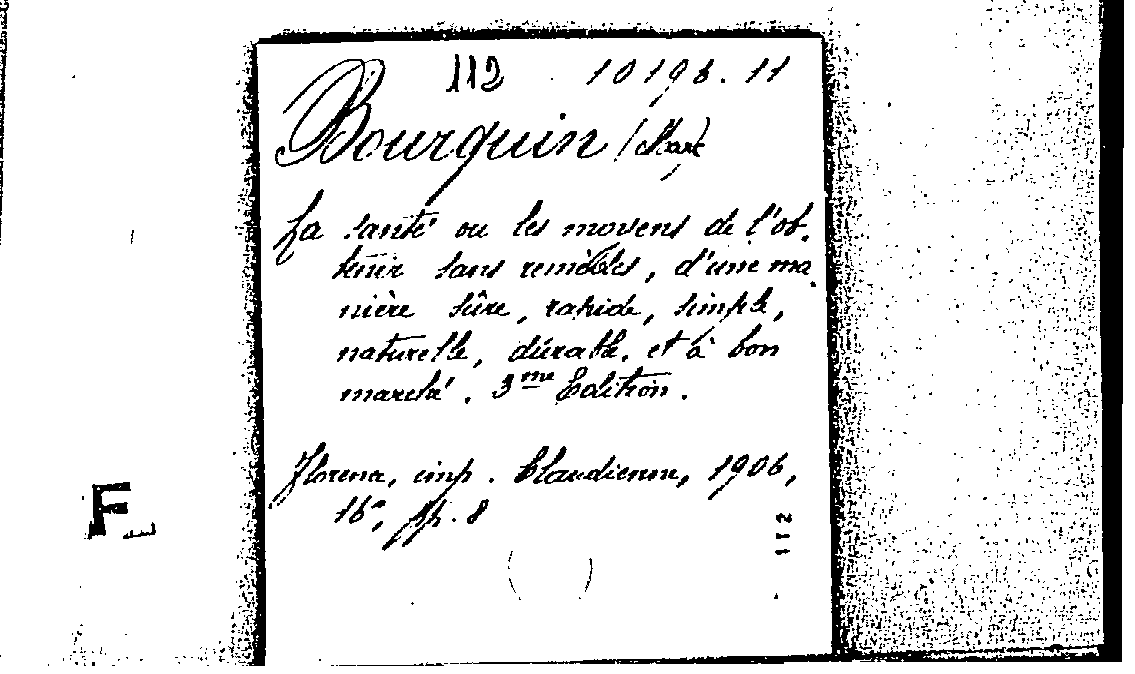 112 10196.11
Bourquin (Marc)
La santé ou les moyens de l'ob-
tenir sans remèdes, d'une ma
nière sûre, rapide, simple,
naturelle, durable, et à bon
marché. 3me Edition.
Florence, imp. Claudienne, 1906,
16°, pp. 8
112
F